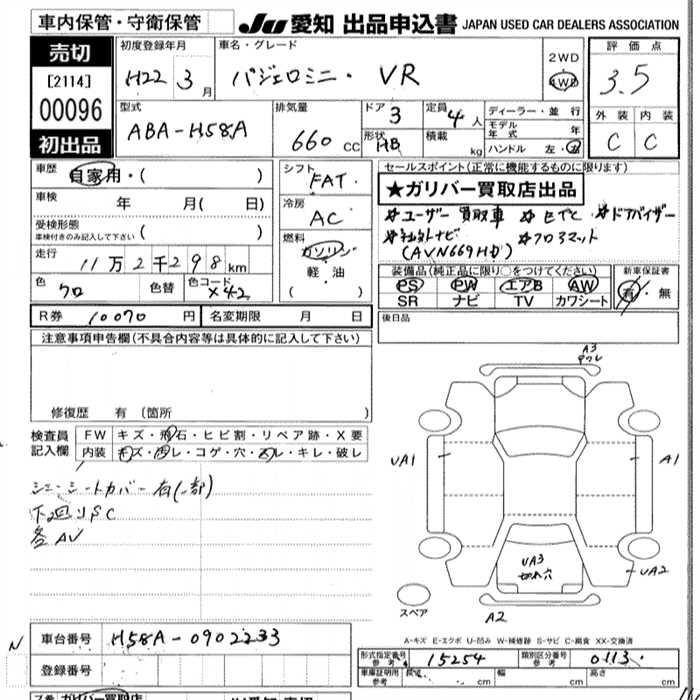 車内保管・守衛保管 JU 愛知 出品申込書 JAPAN USED CAR DEALERS ASSOCIATION
売切 初度登録年月 車名・グレード 2WD 評価点
[2114] H22 3月 パジェロミニ・ VR 4WD 3.5
00096 型式 排気量 ドア 3 定員 4人 ディーラー・並行 外装 内装
初出品 ABA-H58A 660 CC 形状 HB 積載 kg モデル年式 年 C C
ハンドル 左・右
車歴 自家用・( ) シフト FAT セールスポイント(正常に機能するものに限ります)
車検 年 月( 日) 冷房 AC ★ガリバー買取店出品
受検形態 ☆ユーザー買取車 ☆ETC ☆ドアバイザー
車検付きのみ記入して下さい( ) 燃料 ガソリン ☆社外ナビ ☆フロアマット
走行 11万2千298km 軽・油 (AVN669HD)
色 クロ 色替 色コード X42 ( ) 装備品(純正品に限り○をつけてください) 新車保証書
PS PW エアB AW 有・無
SR ナビ TV カワシート
R券 10070円 名変期限 月 日 後日品
注意事項申告欄(不具合内容等は具体的に記入して下さい)
A3
修復歴 有 (箇所 )
検査員 FW キズ・飛石・ヒビ割・リペア跡・X要
記入欄 内装 キズ・凹レ・コゲ・穴・スレ・キレ・破レ
UA1 A1
シートカバー有(一部)
下廻りSC
各AV
UA3 切れ穴 UA2
スペア A2
A-キズ E-エクボ U-凹み W-補修跡 S-サビ C-腐食 XX-交換済
N 車台番号 H58A-0902233
登録番号
形式指定番号 参考 15254 類別区分番号 参考 0113
車庫証明用 参考 長さ cm 幅 cm 高さ cm
ガリバー買取店